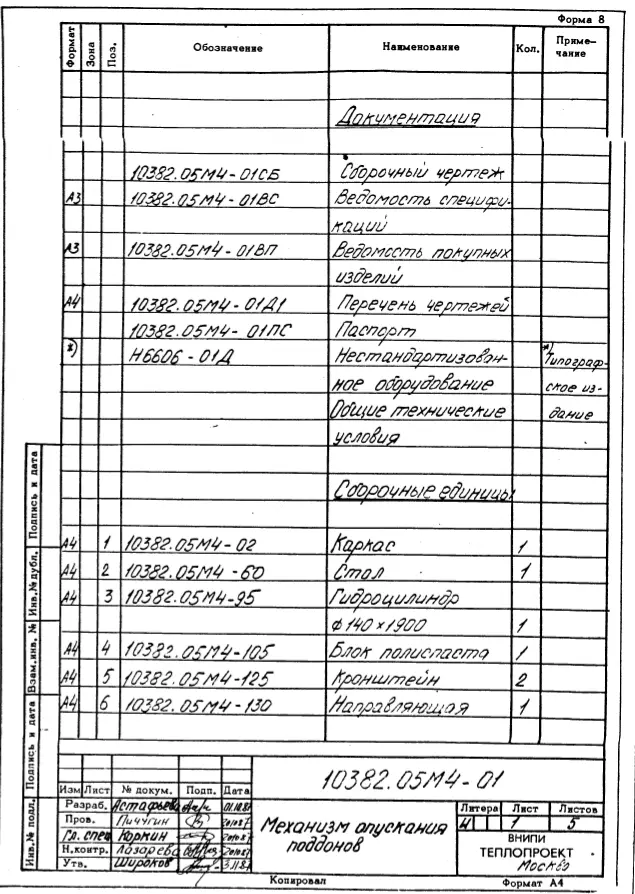 Форма 8
Формат Зона Поз. Обозначение Наименование Кол. Приме-
чание
Документация
10382.05М4-01СБ Сборочный чертеж
А3 10382.05М4-01ВС Ведомость специфи-
каций
А3 10382.05М4-01ВП Ведомость покупных
изделий
А4 10382.05М4-01Д1 Перечень чертежей
10382.05М4-01ПС Паспорт
*) Н6606-01Д Нестандартизован- *) Типограф-
ное оборудование ское из-
Общие технические дание
условия
Сборочные единицы
А4 1 10382.05М4-02 Каркас 1
А4 2 10382.05М4-60 Стол 1
А4 3 10382.05М4-95 Гидроцилиндр
ф140×1900 1
А4 4 10382.05М4-105 Блок полиспаста 1
А4 5 10382.05М4-125 Кронштейн 2
А4 6 10382.05М4-130 Направляющая 1
Инв.№ подл. Подпись и дата Взам.инв. № Инв.№ дубл. Подпись и дата
10382.05М4-01
Изм Лист № докум. Подп. Дата
Разраб. Астафьева 01.10.87
Пров. Пичугин
Гл. спец Кормин
Н.контр. Лазарева
Утв. Широков
Механизм опускания
поддонов
Литера Лист Листов
И 1 5
ВНИПИ
ТЕПЛОПРОЕКТ
Москва
Копировал Формат А4